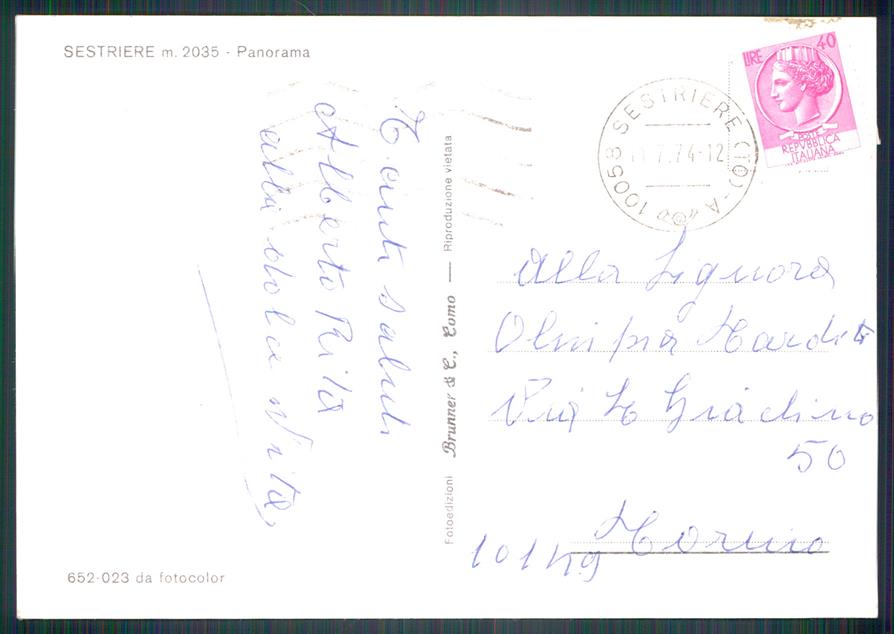 SESTRIERE m. 2035 - Panorama
Tanti saluti
Alberto Rita
alla dolce vita,
652-023 da fotocolor
Fotoedizioni Brunner & C., Como — Riproduzione vietata
10058 SESTRIERE (TO) - A
7.74-12
LIRE 40
POSTE
REPVBBLICA
ITALIANA
Alla Signora
Olimpia
Via
50
10149 Torino